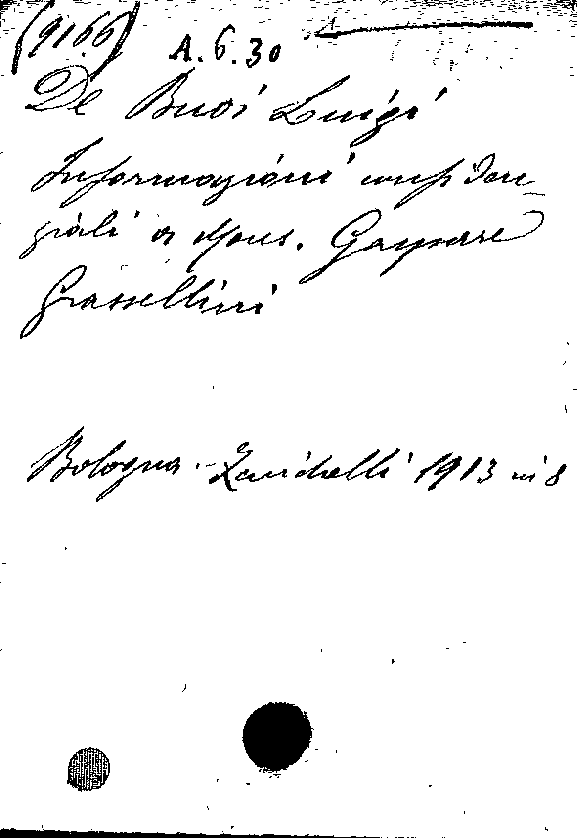 (9166) A.6.30
De Buoi Luigi
Informazioni confiden-
ziali a Mons. Gaspare
Grassellini
Bologna - Zanichelli 1913 in 8